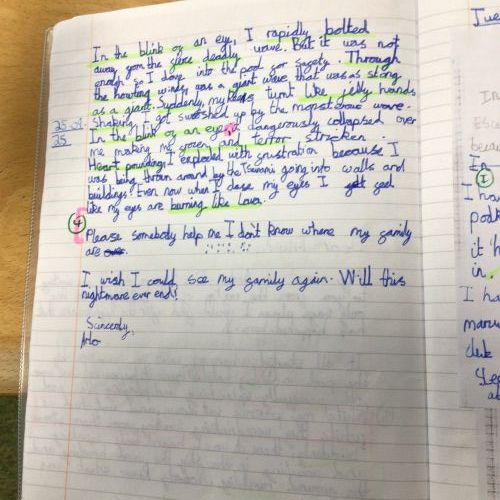 In the blink of an eye, I rapidly bolted
away from the fierce deadly wave. But it was not
enough so I dove into the pool for safety. Through
the howling winds was a giant wave that was as strong
as a giant. Suddenly, my legs turnt like jelly hands
Shaking, I got swooshed up by the monsterous wave.
25 01
25
In the blink of an eye, it dangerously collapsed over
me making my frozen and terror stricken.
Heart pounding, I exploded with frustration because I
was being thrown around by the Tsunami going into walls and
buildings. Even now when I close my eyes I feel
like my eyes are burning like Lava.
4
Please somebody help me I don't know where my family
are
I wish I could see my family again. Will this
nightmare ever end!
Sincerely,
Arlo
Tue
In
Esca
becau
In
I
I ha
pock
it h
in.
I ha
manu